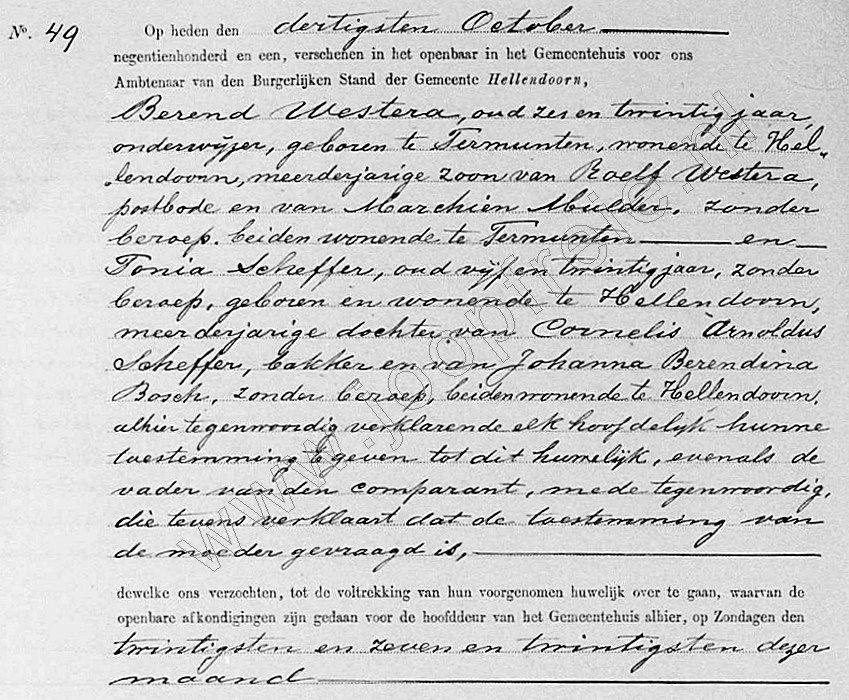 No. 49 Op heden den dertigsten October
negentienhonderd en een, verschenen in het openbaar in het Gemeentehuis voor ons
Ambtenaar van den Burgerlijken Stand der Gemeente Hellendoorn,
Berend Westera, oud zes en twintig jaar,
onderwijzer, geboren te Termunten, wonende te Hel„
„lendoorn, meerderjarige zoon van Roelf Westera,
postbode en van Marchien Mulder, zonder
beroep, beiden wonende te Termunten en
Tonia Scheffer, oud vijf en twintig jaar, zonder
beroep, geboren en wonende te Hellendoorn,
meerderjarige dochter van Cornelis Arnoldus
Scheffer, bakker en van Johanna Berendina
Bosch, zonder beroep, beiden wonende te Hellendoorn,
alhier tegenwoordig verklarende elk hoofdelijk hunne
toestemming te geven tot dit huwelijk, evenals de
vader van den comparant, mede tegenwoordig,
die tevens verklaart dat de toestemming van
de moeder gevraagd is,
dewelke ons verzochten, tot de voltrekking van hun voorgenomen huwelijk over te gaan, waarvan de
openbare afkondigingen zijn gedaan voor de hoofddeur van het Gemeentehuis alhier, op Zondagen den
twintigsten en zeven en twintigsten dezer
maand
www.jooptreic.nl